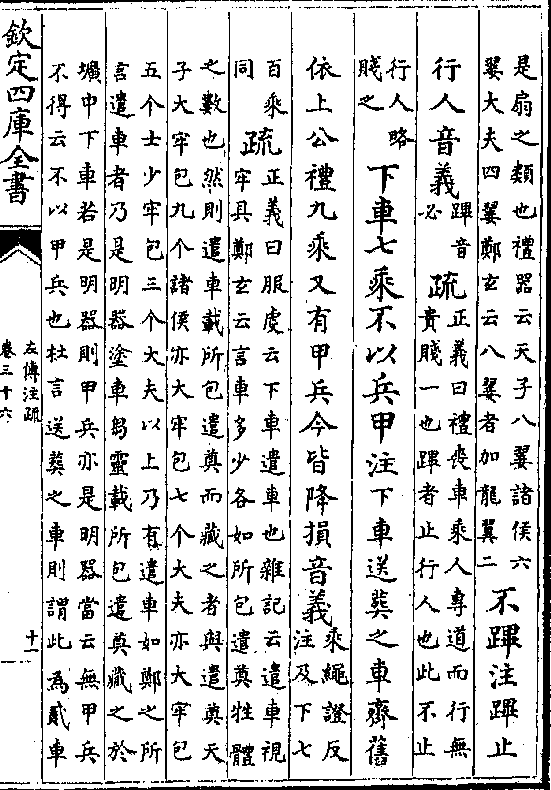 是扇之類也禮器云天子八翣諸侯六
翣大夫四翣鄭玄云八翣者加龍翣二
不蹕注蹕止
行人音義
蹕音
必
疏
正義曰禮喪車乘人專道而行無
貴賤一也蹕者止行人也此不止
行人略
賤之
下車七乘不以兵甲注下車送葬之車齊舊
依上公禮九乘又有甲兵今皆降損音義
乘繩證反
注及下七
百乘
同
疏
正義曰服虔云下車遣車也雜記云遣車視
牢具鄭玄云言車多少各如所包遣奠牲體
之數也然則遣車載所包遣奠而藏之者與遣奠天
子大牢包九个諸侯亦大牢包七个大夫亦大牢包
五个士少牢包三个大夫以上乃有遣車如鄭之所
言遣車者乃是明器塗車芻靈載所包遣奠藏之於
壙中下車若是明器則甲兵亦是明器當云無甲兵
不得云不以甲兵也杜言送葬之車則謂此為貳車
欽定四庫全書
左傳注疏
卷三十六
十一